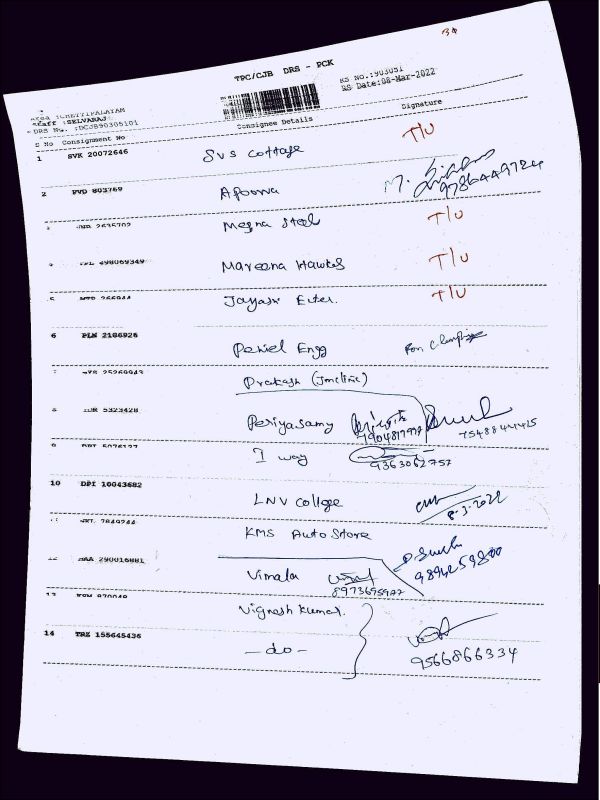 34
TPC/CJB DRS - PCK
RS No.:903051
RS Date:08-Mar-2022
Area :CHETTIPALAYAM
Staff :SELVARAJ
DRS No. :DCJB90305101
S No Consignment No Consignee Details Signature
1 SVK 20072646 SVS Cottage T/U
2 PVD 803769 Apoorva M. 9786449724
2635702 Megna Steel T/U
698069349 Mareena Hawks T/U
5 266944 Jayasri Enter. T/U
6 PLN 2186926 Daniel Engg
25269943 Prakash (Joncline)
8 IDR 5323428 Periyasamy 7904817997 7548844415
9 5076127 I way 9363062757
10 DPI 10043682 LNV College 8-3-2022
7849244 KMS Auto Store
12 MAA 290016881 Vimala 8973695977 9894259800
13 970048 Vignesh Kumar.
14 TRZ 155645436 - do - 9566866334